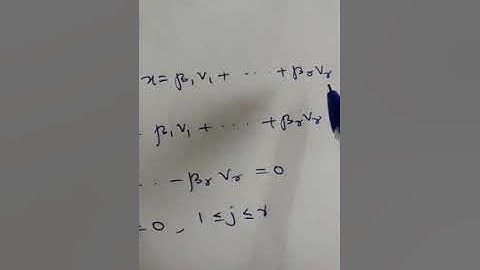 x = β₁v₁ + ... + βᵣvᵣ
- β₁v₁ + ... + βᵣvᵣ
.. - βᵣvᵣ = 0
=0, 1 ≤ j ≤ r